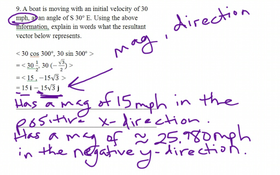 9. A boat is moving with an initial velocity of 30
mph, at an angle of S 30° E. Using the above
information, explain in words what the resultant
vector below represents.
mag, direction
< 30 cos 300°, 30 sin 300° >
= < 30 · 1/2, 30 · (-√3/2) >
= < 15, - 15√3 >
= 15 i - 15√3 j
Has a mag of 15 mph in the
positive x-direction.
Has a mag of ≈ 25.980 mph
in the negative y-direction.